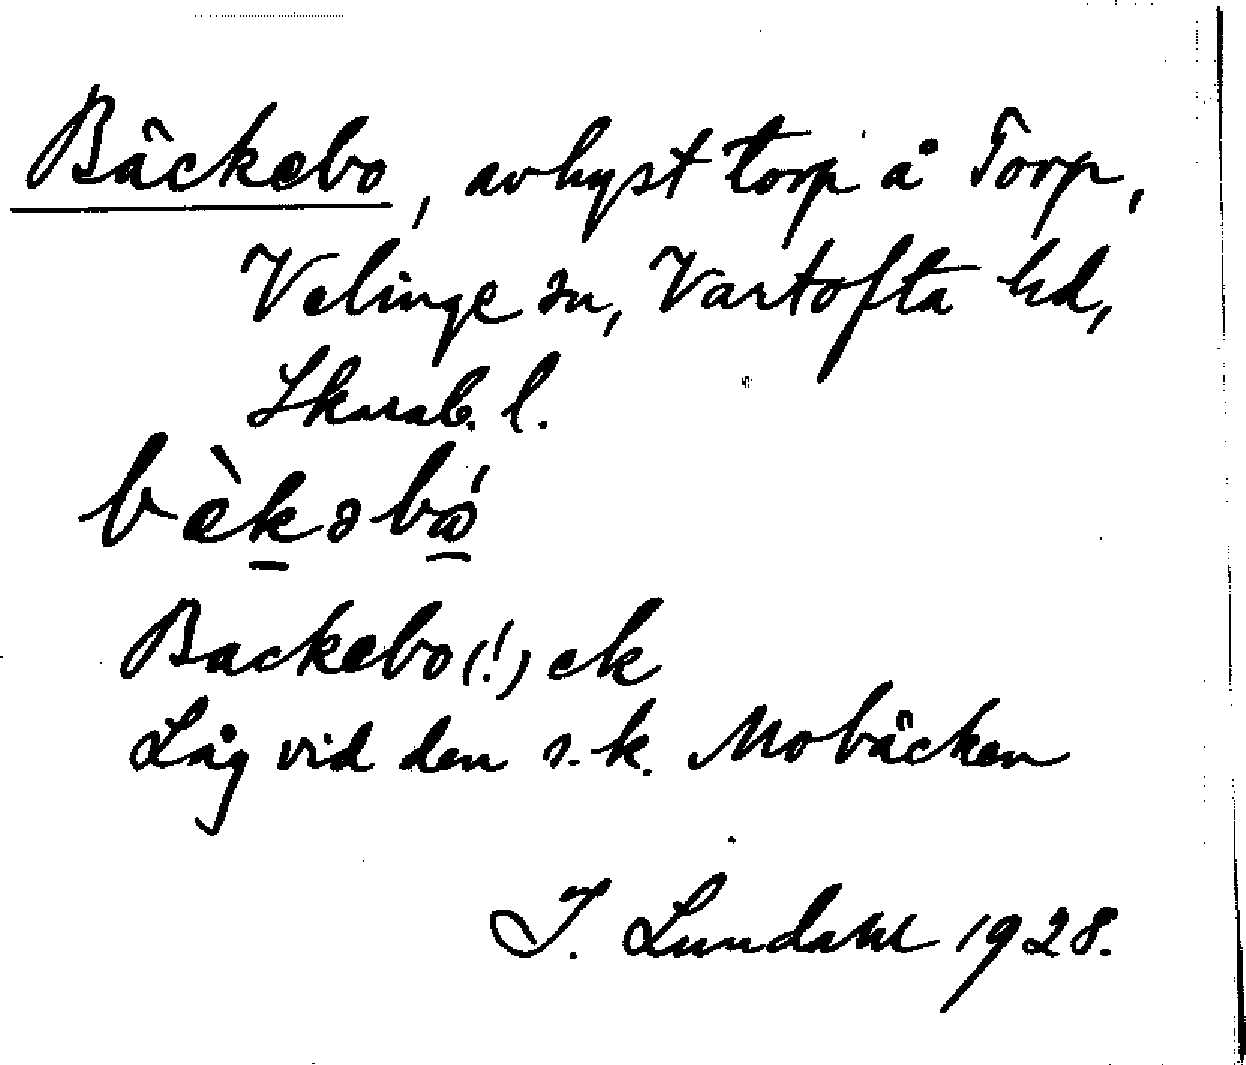 Bäckebo, avhyst torp å Torp,
Velinge sn, Vartofta hd,
Skarab. l.
bèkəbó
Backebo (!) ek
Låg vid den s.k. Mobäcken
I. Lundahl 1928.